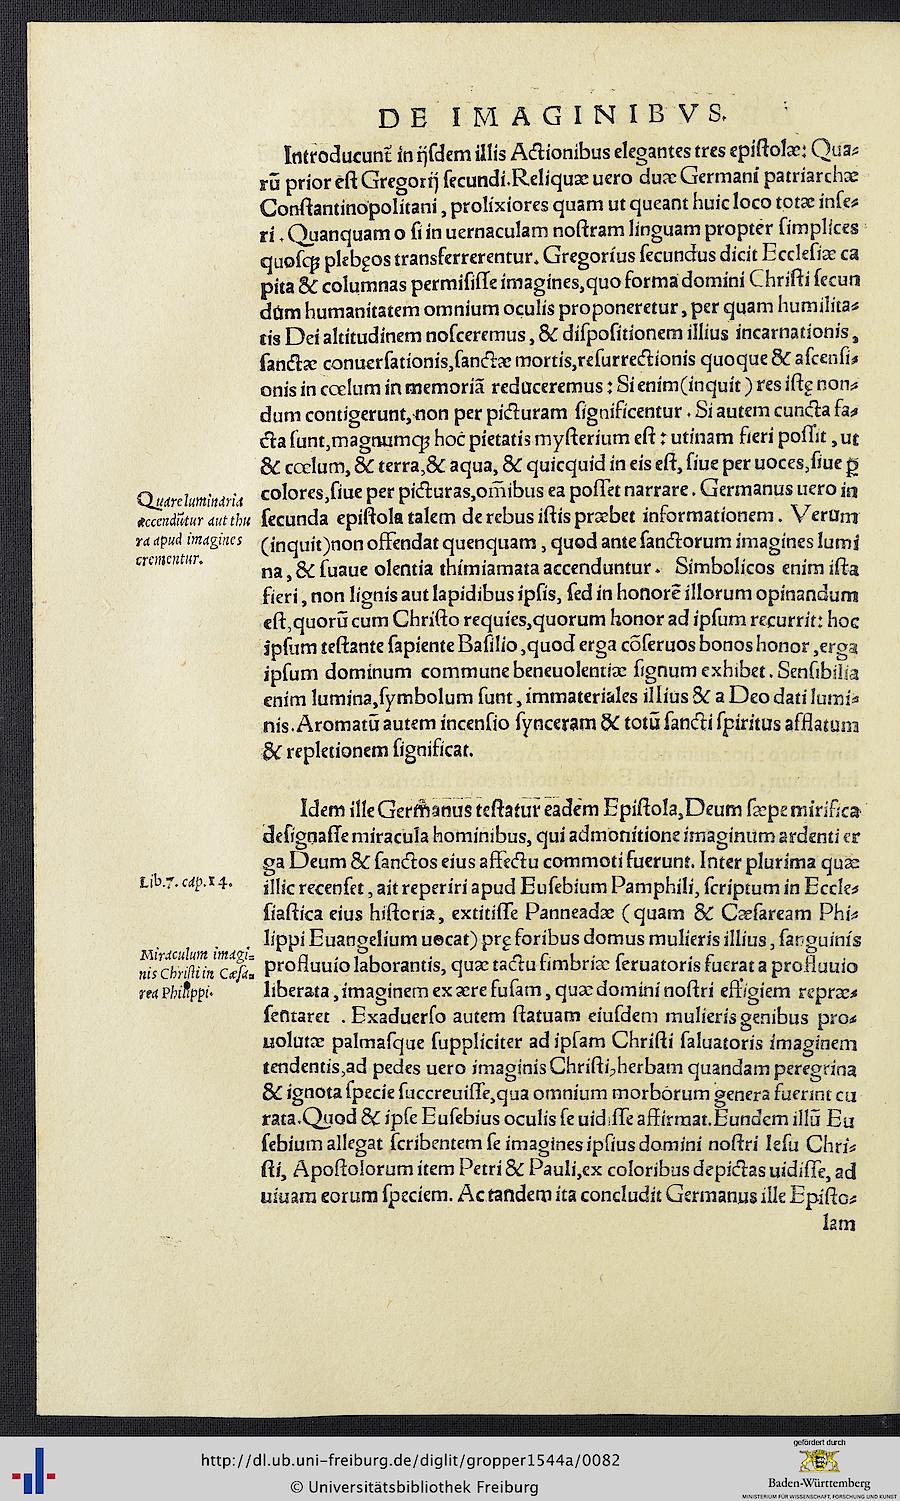 DE IMAGINIBVS.
Introducunt̃ in ijſdem illis Actionibus elegantes tres epiſtolæ: Qua⸗
rũ prior eſt Gregorij ſecundi. Reliquæ uero duæ Germani patriarchæ
Conſtantinopolitani, prolixiores quam ut queant huic loco totæ inſe⸗
ri. Quanquam o ſi in uernaculam noſtram linguam propter ſimplices
quoſqꝫ plebęos transferrerentur. Gregorius ſecundus dicit Eccleſiæ ca
pita & columnas permiſiſſe imagines, quo forma domini Chriſti ſecun
dum humanitatem omnium oculis proponeretur, per quam humilita⸗
tis Dei altitudinem noſceremus, & diſpoſitionem illius incarnationis,
ſanctæ conuerſationis, ſanctæ mortis, reſurrectionis quoque & aſcenſi⸗
onis in cœlum in memoriã reduceremus: Si enim (inquit) res iſtę non⸗
dum contigerunt, non per picturam ſignificentur. Si autem cuncta fa⸗
cta ſunt, magnumqꝫ hoc pietatis myſterium eſt: utinam fieri poſſit, ut
& cœlum, & terra, & aqua, & quicquid in eis eſt, ſiue per uoces, ſiue ꝑ
colores, ſiue per picturas, om̃ibus ea poſſet narrare. Germanus uero in
ſecunda epiſtola talem de rebus iſtis præbet informationem. Verum
(inquit) non offendat quenquam, quod ante ſanctorum imagines lumi
na, & ſuaue olentia thimiamata accenduntur. Simbolicos enim iſta
fieri, non lignis aut lapidibus ipſis, ſed in honorẽ illorum opinandum
eſt, quorũ cum Chriſto requies, quorum honor ad ipſum recurrit: hoc
ipſum teſtante ſapiente Baſilio, quod erga cõſeruos bonos honor, erga
ipſum dominum commune beneuolentiæ ſignum exhibet. Senſibilia
enim lumina, ſymbolum ſunt, immateriales illius & a Deo dati lumi⸗
nis. Aromatũ autem incenſio ſynceram & totũ ſancti ſpiritus afflatum
& repletionem ſignificat.
Quare luminaria
accendũtur aut thu
ra apud imagines
crementur.
Idem ille Germanus teſtatur eadem Epiſtola, Deum ſæpe mirifica
deſignaſſe miracula hominibus, qui admonitione imaginum ardenti er
ga Deum & ſanctos eius affectu commoti fuerunt. Inter plurima quæ
illic recenſet, ait reperiri apud Euſebium Pamphili, ſcriptum in Eccle⸗
ſiaſtica eius hiſtoria, extitiſſe Panneadæ (quam & Cæſaream Phi⸗
lippi Euangelium uocat) prę foribus domus mulieris illius, ſanguinis
profluuio laborantis, quæ tactu fimbriæ ſeruatoris fuerat a profluuio
liberata, imaginem ex ære fuſam, quæ domini noſtri effigiem repræ⸗
ſentaret. Exaduerſo autem ſtatuam eiuſdem mulieris genibus pro⸗
uolutæ palmaſque ſuppliciter ad ipſam Chriſti ſaluatoris imaginem
tendentis, ad pedes uero imaginis Chriſti, herbam quandam peregrina
& ignota ſpecie ſuccreuiſſe, qua omnium morborum genera fuerint cu
rata. Quod & ipſe Euſebius oculis ſe uidiſſe affirmat. Eundem illũ Eu
ſebium allegat ſcribentem ſe imagines ipſius domini noſtri Ieſu Chri⸗
ſti, Apoſtolorum item Petri & Pauli, ex coloribus depictas uidiſſe, ad
uiuam eorum ſpeciem. Ac tandem ita concludit Germanus ille Epiſto⸗
lam
Lib.7. cap.14.
Miraculum imagi⸗
nis Chriſti in Cæſa⸗
rea Philippi.
http://dl.ub.uni-freiburg.de/diglit/gropper1544a/0082
© Universitätsbibliothek Freiburg
gefördert durch
Baden-Württemberg
MINISTERIUM FÜR WISSENSCHAFT, FORSCHUNG UND KUNST